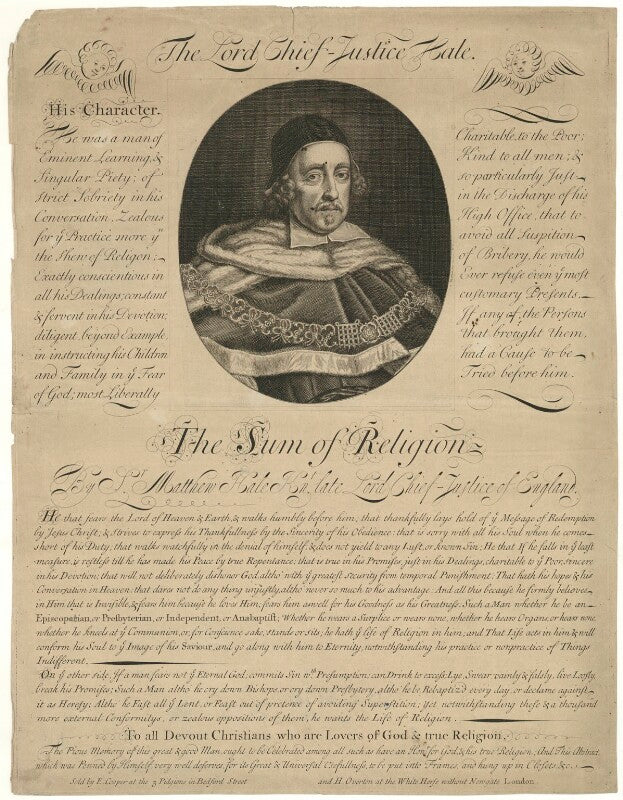 The Lord Chief-Justice Hale.
His Character.
He was a man of
Eminent Learning, &
Singular Piety; of
strict Sobriety in his
Conversation; Zealous
for ẏ Practice more yⁿ
the Shew of Religion;
Exactly conscientious in
all his Dealings; constant
& fervent in his Devotion;
diligent beyond Example
in instructing his Children
and Family in ẏ Fear
of God; most Liberally
Charitable to the Poor;
Kind to all men; &
so particularly Just
in the Discharge of his
High Office, that to
avoid all Suspition
of Bribery, he would
Ever refuse even ẏ most
customary Presents.
If any of the Persons
that brought them,
had a Cause to be
Tried before him.
The Sum of Religion
By Sr. Matthew Hale Knt. late Lord Chief-Justice of England.
He that fears the Lord of Heaven & Earth, & walks humbly before him, that thankfully lays hold of ẏ Message of Redemption
by Jesus Christ, & strives to express his Thankfullness by the Sincerity of his Obedience; that is sorry with all his Soul when he comes
short of his Duty; that walks watchfully in the denial of himself, & does not yield to any Lust, or known Sin; He that If he falls in ẏ least
measure, is restless till he has made his Peace by true Repentance; that is true in his Promises, just in his Dealings, charitable to ẏ Poor, sincere
in his Devotion; that will not deliberately dishonor God, altho' with ẏ greatest Security from temporal Punishment; That hath his hopes & his
Conversation in Heaven; that dares not do any thing unjustly, altho' never so much to his advantage. And all this because he firmly believes
in Him that is Invisible, & fears him because he loves Him, fears him as well for his Goodness as his Greatness. Such a Man whether he be an
Episcopalian, or Presbyterian, or Independent, or Anabaptist; Whether he wears a Surplice or wears none, whether he hears Organs, or hears none
whether he kneels at ẏ Communion, or for Conscience sake, stands or sits; he hath ẏ life of Religion in him; and That Life acts in him, & will
conform his Soul to ẏ Image of his Saviour, and go along with him to Eternity, notwithstanding his practice or nonpractice of Things
Indifferent.
On ẏ other side, If a man fears not ẏ Eternal God, commits Sin wth Presumption, can Drink to excess, Lye, Swear, vainly & falsly, live Loosly,
break his Promises; Such a Man altho he cry down Bishops, or cry down Presbytery, altho he be Rebaptiz'd every day, or declame against
it as Heresy; Altho he Fast all ẏ Lent, or Feast out of pretence of avoiding Superstition; yet notwithstanding these & a thousand
more external Conformitys, or zealous oppositions of them, he wants the Life of Religion.
To all Devout Christians who are Lovers of God & true Religion.
The Pious Memory of this great & good Man, ought to be Celebrated among all such as have an Honr. for God, & his true Religion; And This Abstract,
which was Penned by Himself, very well deserves, for its Great & Universal Usefullness, to be put into Frames, and hung up in Closets &c.
Sold by E. Cooper at the 3 Pidgeons in Bedford Street and H. Overton at the White Horse without Newgate London.